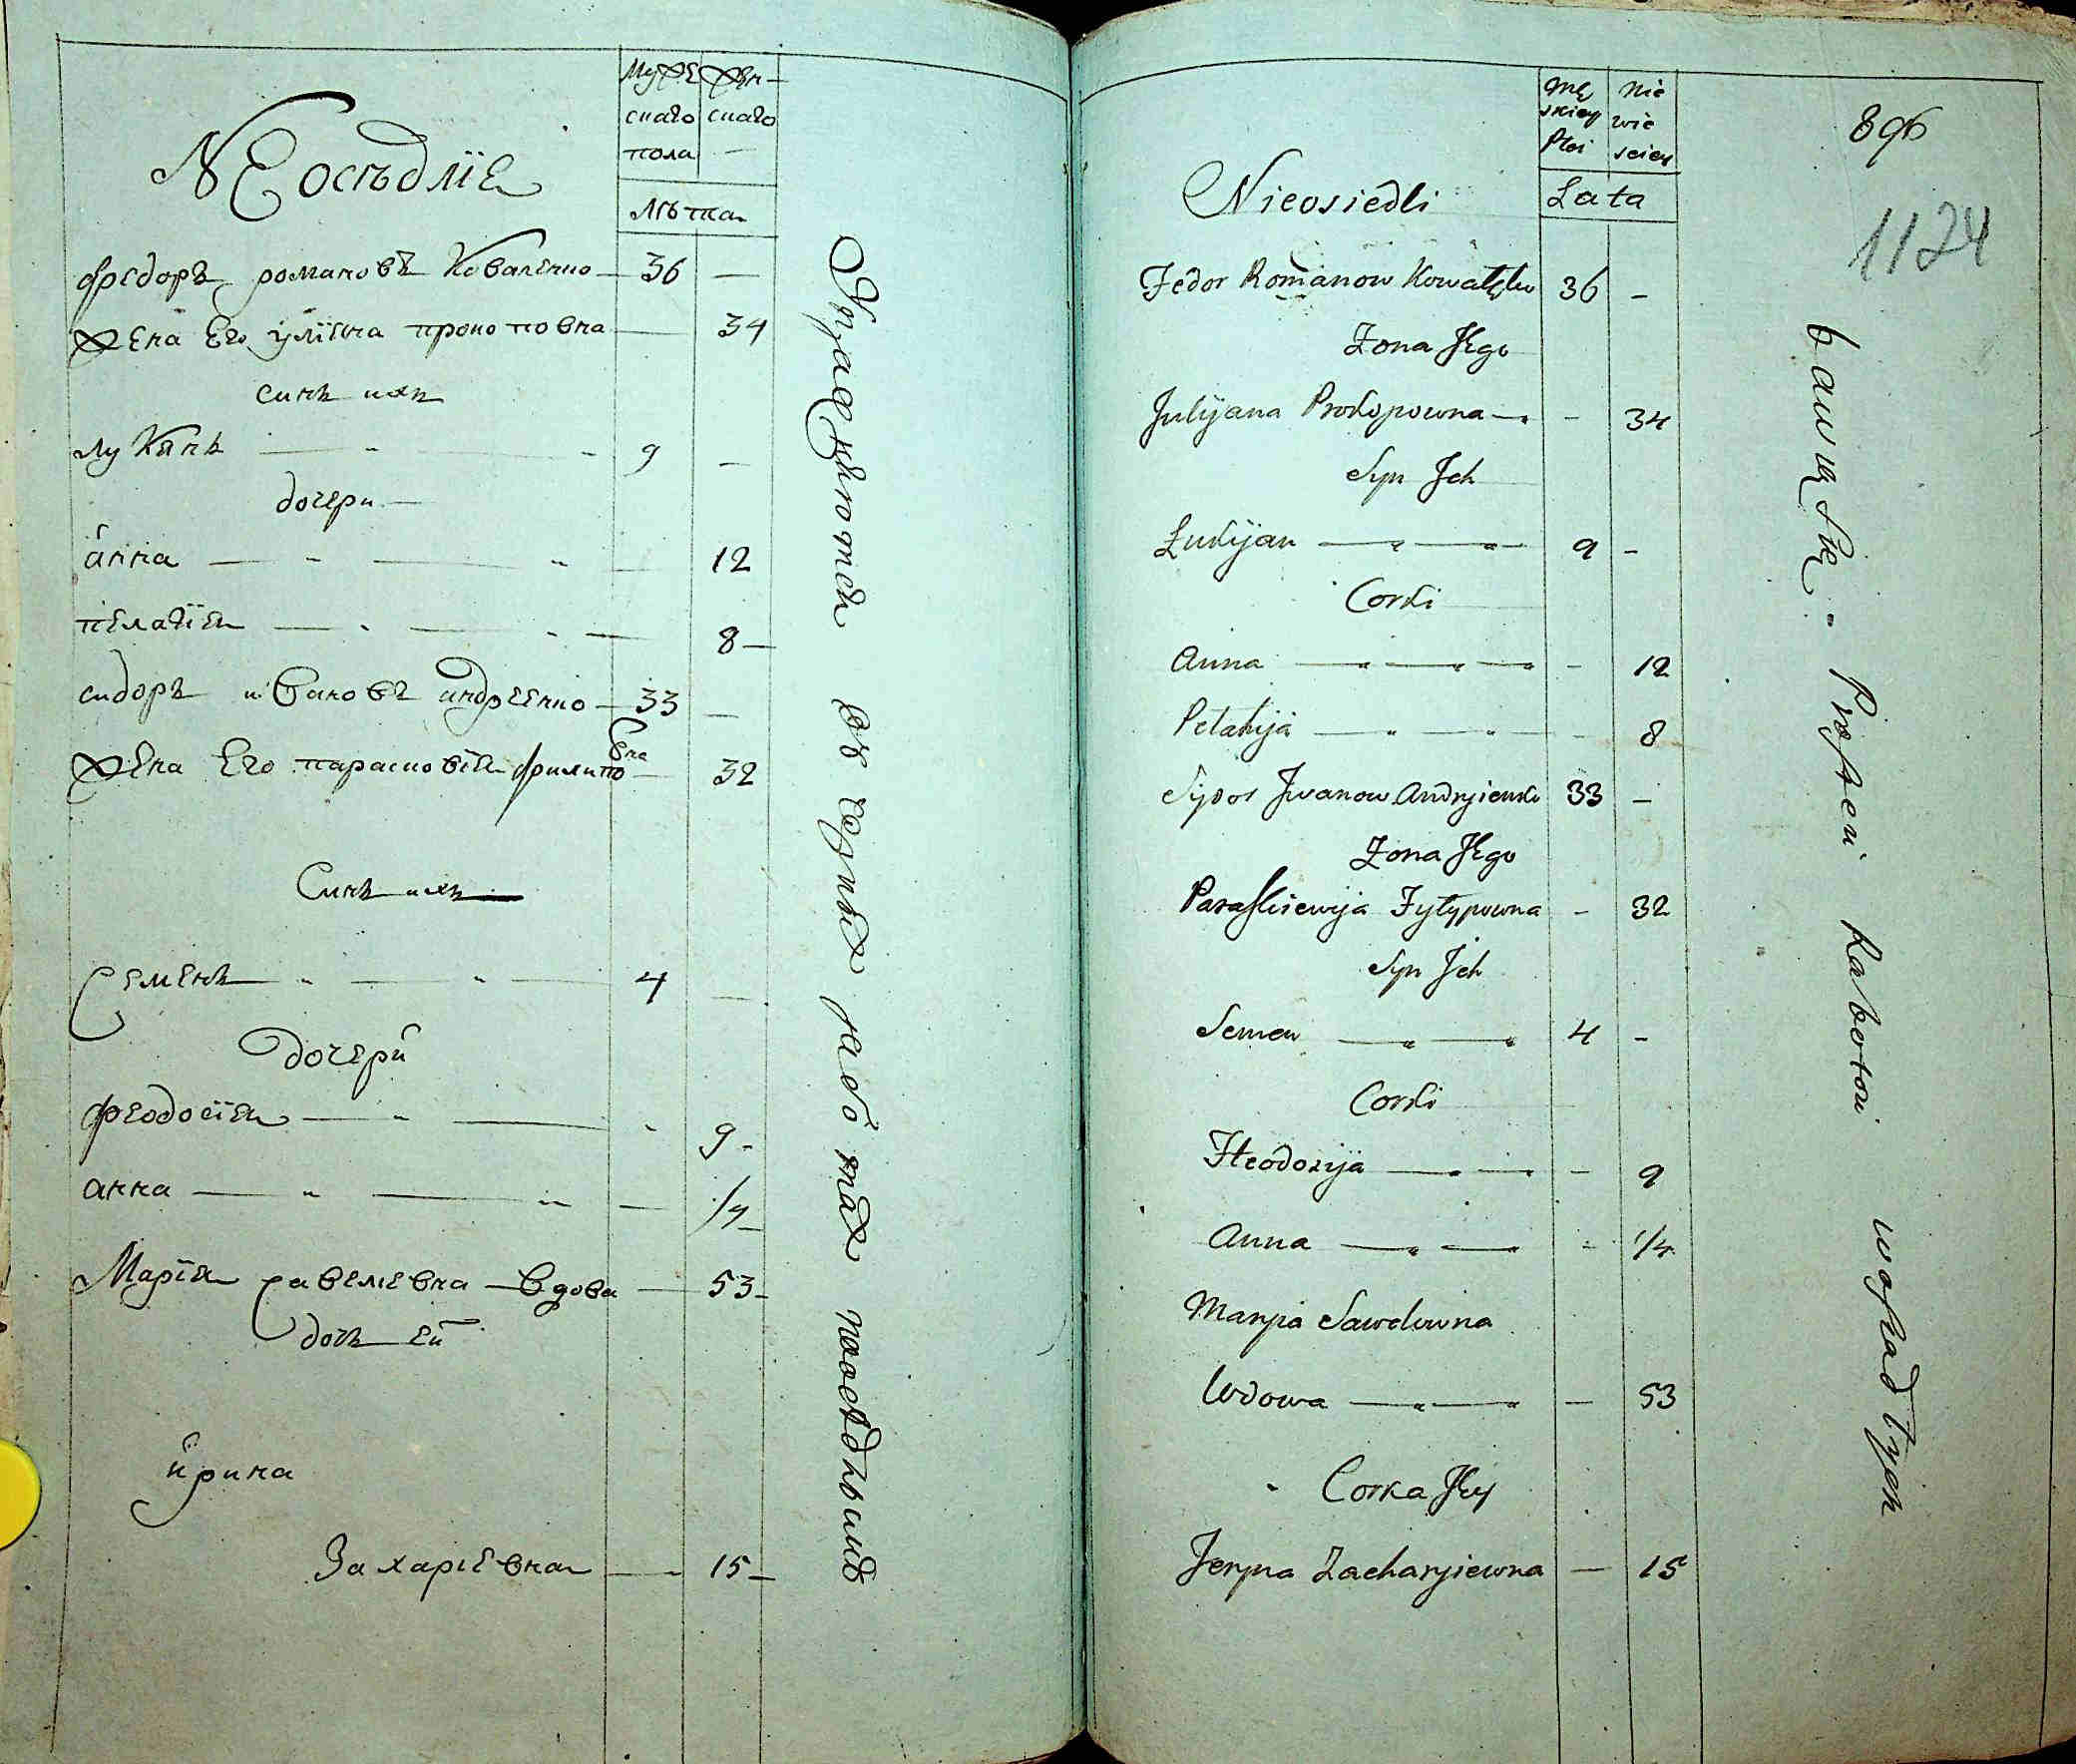 Муже
скаго
пола
жен-
скаго
—
лѣта
НЕосѣдліе
федоръ романовъ Коваленко — 36 —
жена Его уліяна прокоповна — 34
синъ ихъ
луКянъ — " — " 9 —
дочери —
анна — " — " — 12
пелагіея — " — " — 8 —
сидоръ ивановъ андреенко — 33 —
жена Его парасковія филипо
вна
— 32
Синъ ихъ
Семенъ — " — " — 4 —
Дочери
феодосія — " — " 9 -
анна — " — " — 1/4 —
Марія савелиевна — вдова — 53 —
дочь ей
ирина
Захаріевна — " 15 —
Упражняются въ разних работах
Mę
skiey
Płci
Nie
wie
sciey
Lata
Nieosiedli
896
1124
Fedor Romanow Kowalęko 36 –
Zona Jego
Julijana Prokopowna — – 34
Syn Jch
Łukijan — " — " — 9 –
Corki
Anna — " — " — " – 12
Pelahija — " — " – 8
Sydor Jwanow Andryienko 33 –
Zona Jego
Paraskiewija Fyłypowna – 32
Syn Jch
Semen — " — " 4 –
Corki
Fteodosija — " — " – 9
Anna — " — " – 1/4
Maryia Sawelowna
Wdowa — " — " – 53
Corka Jey
Jeryna Zacharyiewna – 15
bawią się